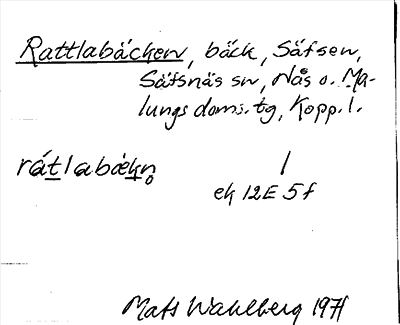 Rattlabäcken, bäck, Säfsen,
Säfsnäs sn, Nås o. Ma-
lungs doms. tg, Kopp. l.
rátlabäkn̥
ek 12E 5f
Mats Wahlberg 1971